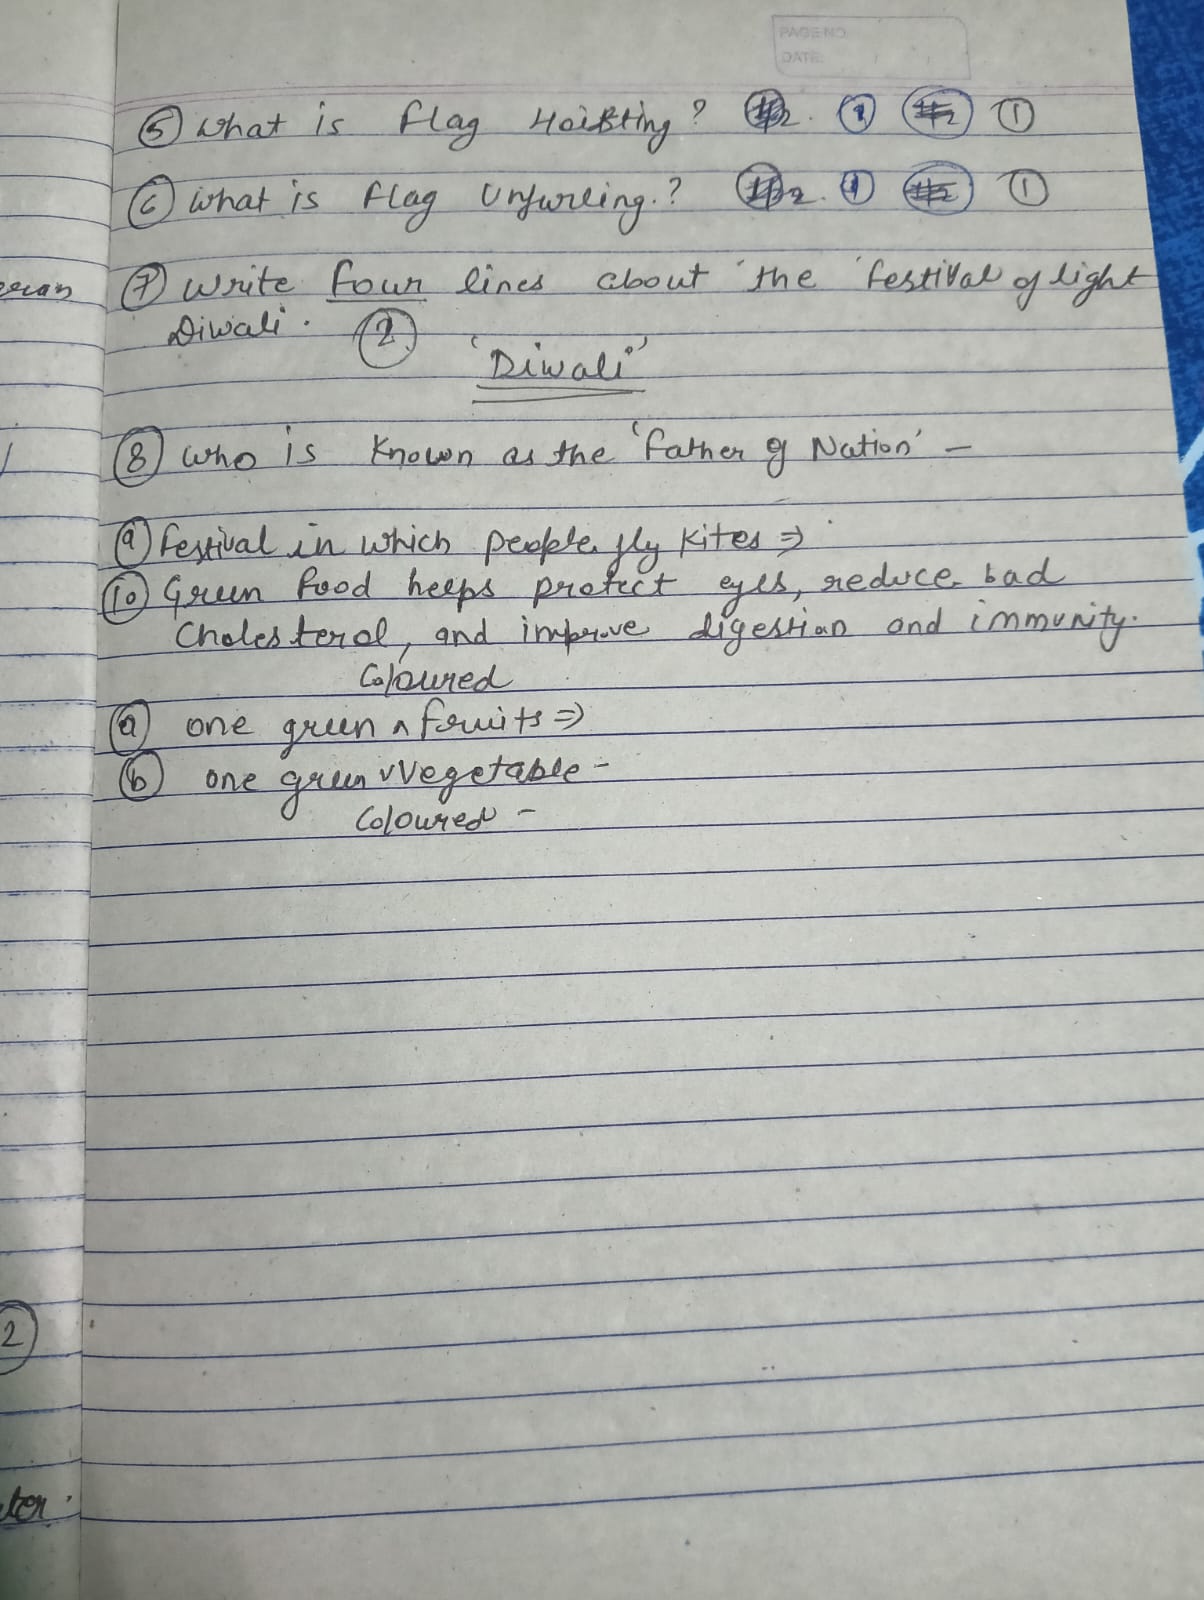 PAGE NO.
DATE: / /
⑤ What is flag Hoisting? ① ①
⑥ What is flag Unfurling.? ① ①
⑦ Write four lines about 'the festival of light
Diwali. ②
'Diwali'
⑧ Who is Known as the 'father of Nation' -
⑨ festival in which people fly kites ⇒
⑩ Green food helps protect eyes, reduce bad
Cholesterol, and improve digestion and immunity.
Coloured
ⓐ one green ^ fruits ⇒
ⓑ one green v Vegetable -
Coloured -
②